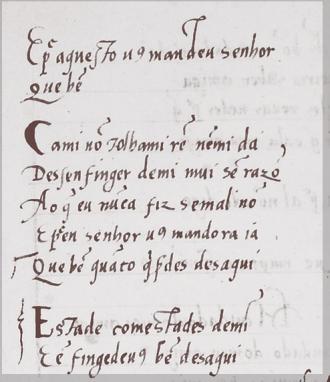 E pᷓ aquesto uꝯ mandeu senhor
Que bẽ
Cami nõ tolhami rẽ nẽmi da
Dessenfinger demi mui sẽ razõ
Ao q̃ eu nũca fiz se mal nõ
E pẽn senhor uꝯ mandora ia
Que bẽ quãto q̃sdes desaqui
Estade comestades demi
E ẽ fingedeuꝯ bẽ desaqui